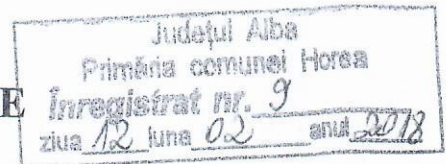 Județul Alba
Primăria comunei Horea
E Înregistrat nr. 9
ziua 12 luna 02 anul 2018